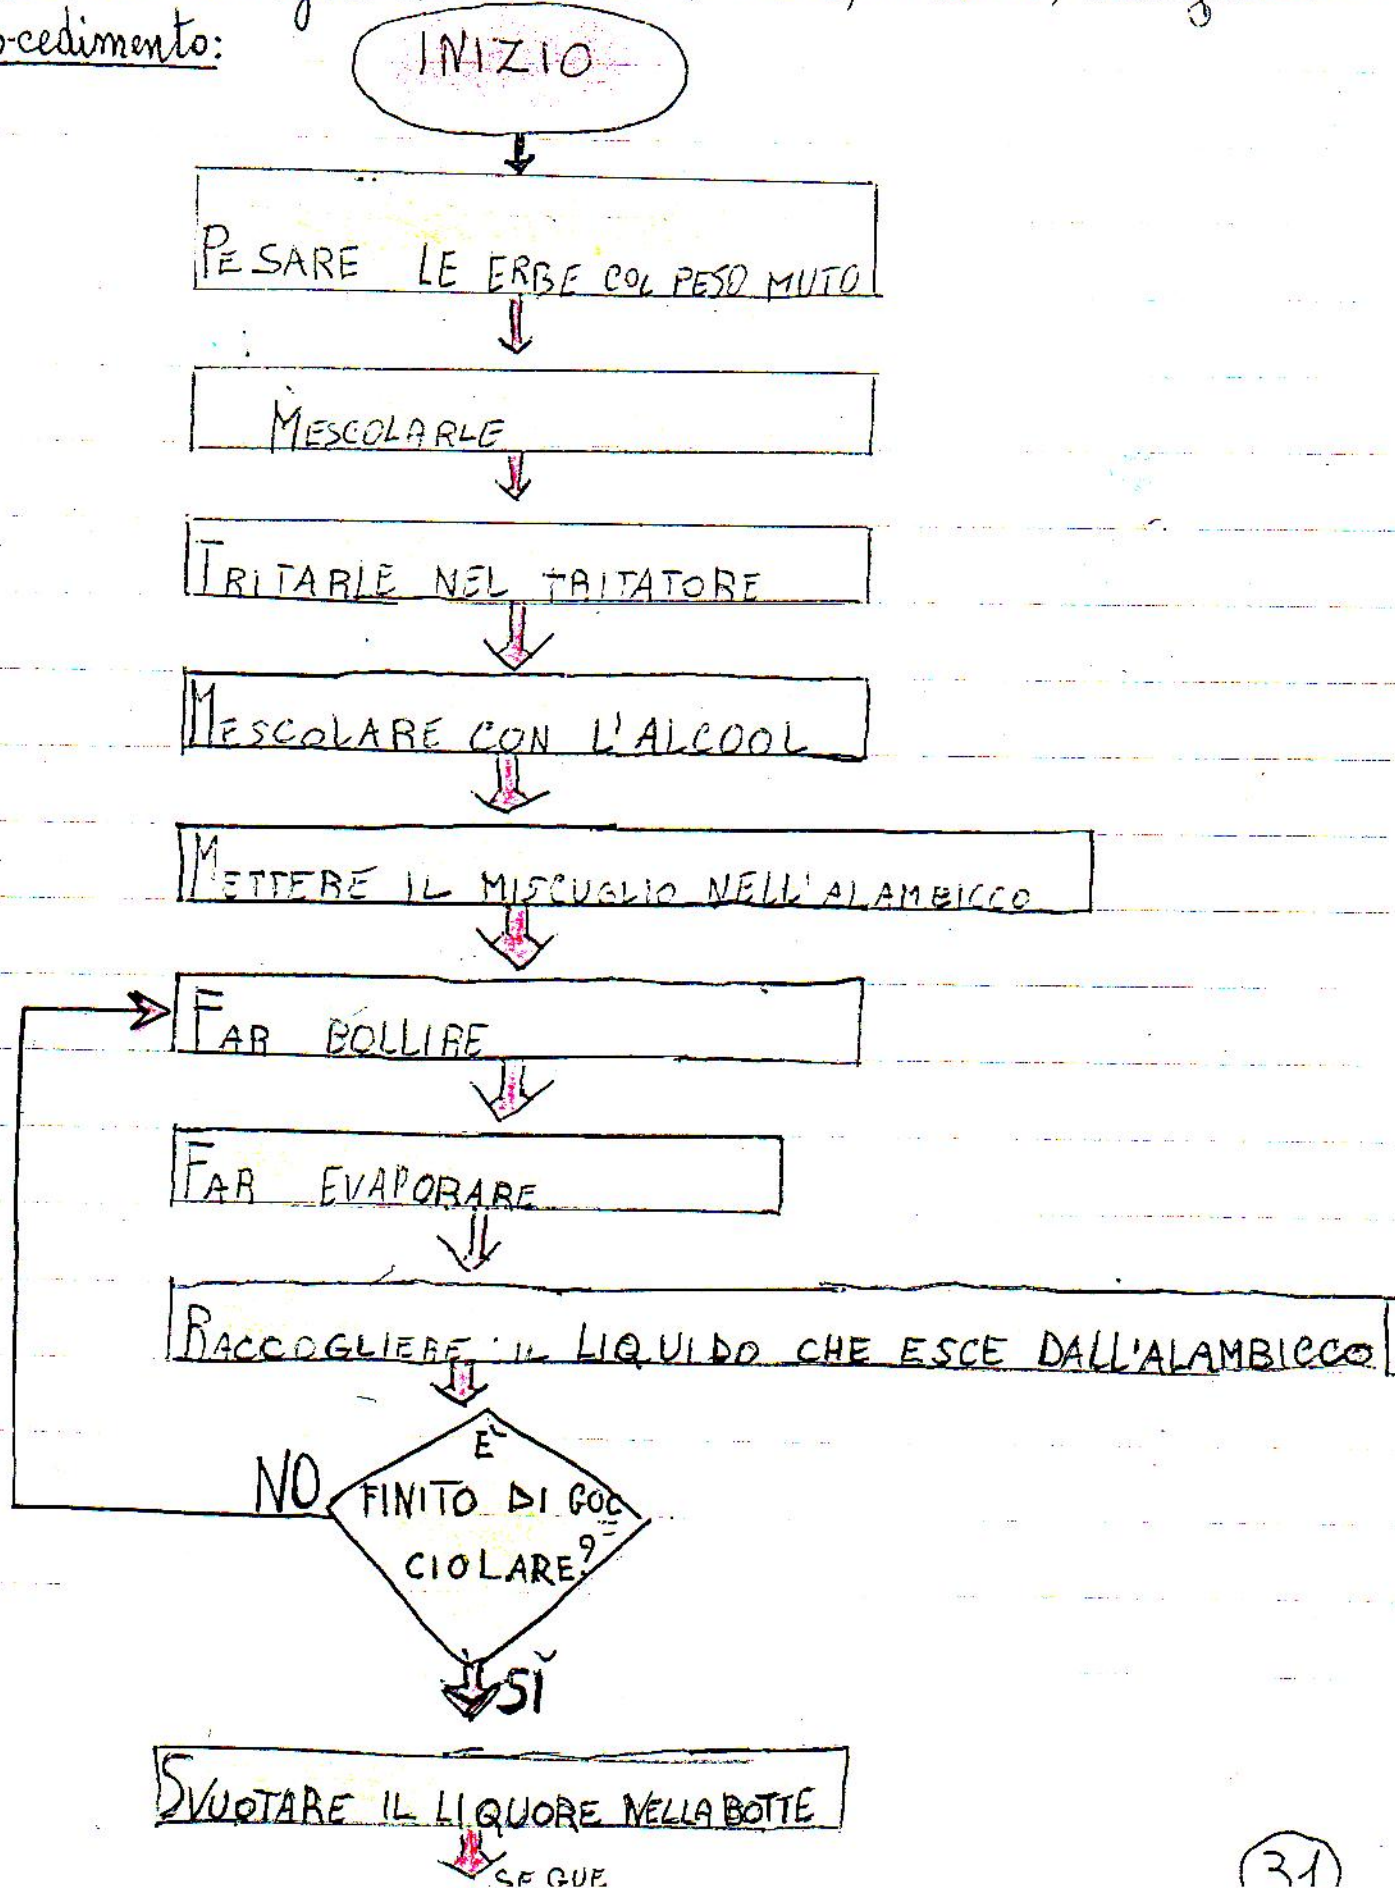 cedimento:
INIZIO
PESARE LE ERBE COL PESO MUTO
MESCOLARLE
TRITARLE NEL TRITATORE
MESCOLARE CON L'ALCOOL
METTERE IL MISCUGLIO NELL'ALAMBICCO
FAR BOLLIRE
FAR EVAPORARE
RACCOGLIERE IL LIQUIDO CHE ESCE DALL'ALAMBICCO
È
NO FINITO DI GOC
CIOLARE?
SÌ
SVUOTARE IL LIQUORE NELLA BOTTE
SEGUE
31